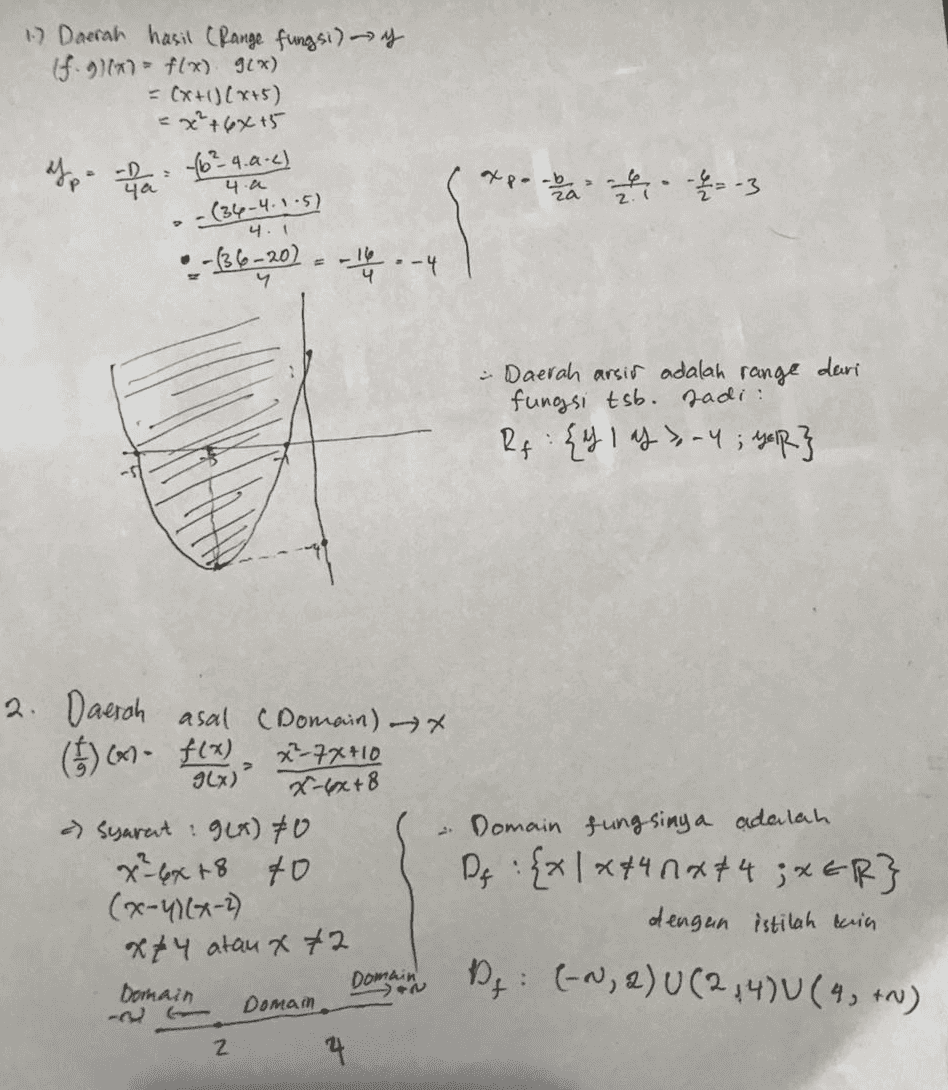 1.) Daerah hasil (Range fungsi) → y
(f.g)(x) = f(x). g(x)
= (x+1)(x+5)
= x²+6x+5
yp = -D/4a = -(b²-4.a.c)/4.a
= -(36-4.1.5)/4.1
= -(36-20)/4 = -16/4 = -4
xp = -b/2a = -6/2.1 = -6/2 = -3
-5 -3 -1
-4
∴ Daerah arsir adalah range dari
fungsi tsb. Jadi :
Rf : {y | y ≥ -4 ; y∈R}
2. Daerah asal (Domain) → x
(f/g)(x) = f(x)/g(x) = x²-7x+10/x²-6x+8
⇒ Syarat : g(x) ≠ 0
x²-6x+8 ≠ 0
(x-4)(x-2)
x≠4 atau x≠2
Domain Domain Domain
-∞ ← → +∞
2 4
∴ Domain fungsinya adalah
Df : {x | x≠4 ∩ x≠4 ; x∈R}
dengan istilah lain
Df : (-∞, 2) U (2,4) U (4, +∞)